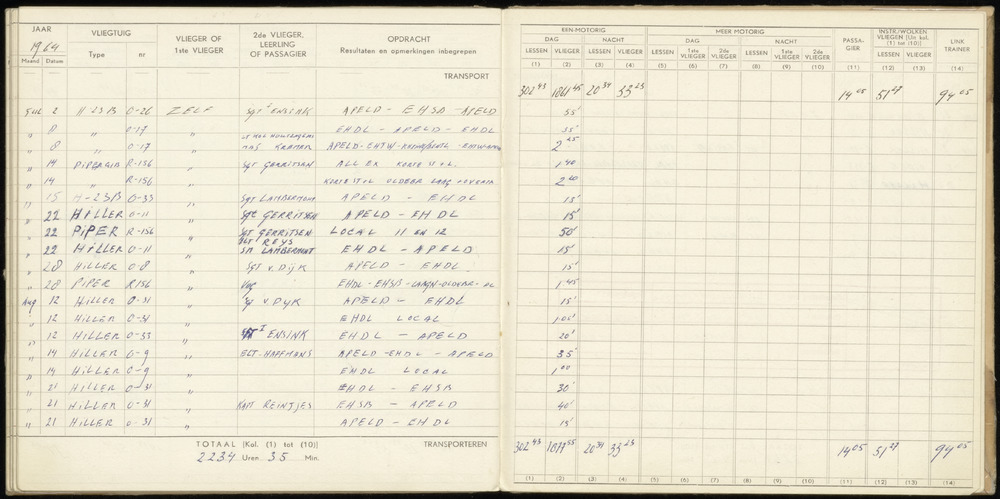 JAAR VLIEGTUIG VLIEGER OF 1ste VLIEGER 2de VLIEGER, LEERLING OF PASSAGIER OPDRACHT Resultaten en opmerkingen inbegrepen
1964
Maand Datum Type nr
TRANSPORT
Jul 2 H-23B O-26 ZELF Sgt I ENSINK APELD - EHSB - APELD
" 8 " O-17 " EHDL - APELD - EHDL
" 8 " O-17 "
" 14 R-156 " Sgt GERRITSEN
" 14 " R-156
" 15 H-23B O-33 " Sgt LAMBERMONT APELD - EHDL
" 22 HILLER O-11 " Sgt GERRITSEN APELD - EHDL
" 22 PIPER R-156 Sgt GERRITSEN LOCAL 11 EN 12
" 22 HILLER O-11 " Sgt REYS SM LAMBERMONT EHDL - APELD
" 28 HILLER O-8 " Sgt v. DIJK APELD - EHDL
" 28 PIPER R156 "
Aug 12 HILLER O-31 " Sgt v DYK APELD - EHDL
" 12 HILLER O-31 " EHDL LOCAL
" 12 HILLER O-33 " I ENSINK EHDL - APELD
" 14 HILLER O-9 " HOFFMANS APELD - EHDL - APELD
" 14 HILLER O-9 " EHDL LOCAL
" 21 HILLER O-31 " EHDL - EHSB
" 21 HILLER O-31 " KAPT REINTJES EHSB - APELD
" 21 HILLER O-31 " APELD - EHDL
TOTAAL (Kol. (1) tot (10)) TRANSPORTEREN
2234 Uren 35 Min.
EEN-MOTORIG MEER MOTORIG PASSA-GIER INSTR/WOLKEN VLIEGEN [Un kol. (1) tot (10)] LINK TRAINER
DAG NACHT DAG NACHT
LESSEN VLIEGER LESSEN VLIEGER LESSEN 1ste VLIEGER 2de VLIEGER LESSEN 1ste VLIEGER 2de VLIEGER LESSEN VLIEGER
(1) (2) (3) (4) (5) (6) (7) (8) (9) (10) (11) (12) (13) (14)
302 43 1861 45 20 34 33 23 14 05 51 27 94 05
55'
35'
2 25
1 40
2 20
15'
15'
50'
15'
15'
1 45
15'
20'
35'
1 00
30'
40'
15'
302 43 1877 55 20 34 33 23 14 05 51 27 94 05
(1) (2) (3) (4) (5) (6) (7) (8) (9) (10) (11) (12) (13) (14)